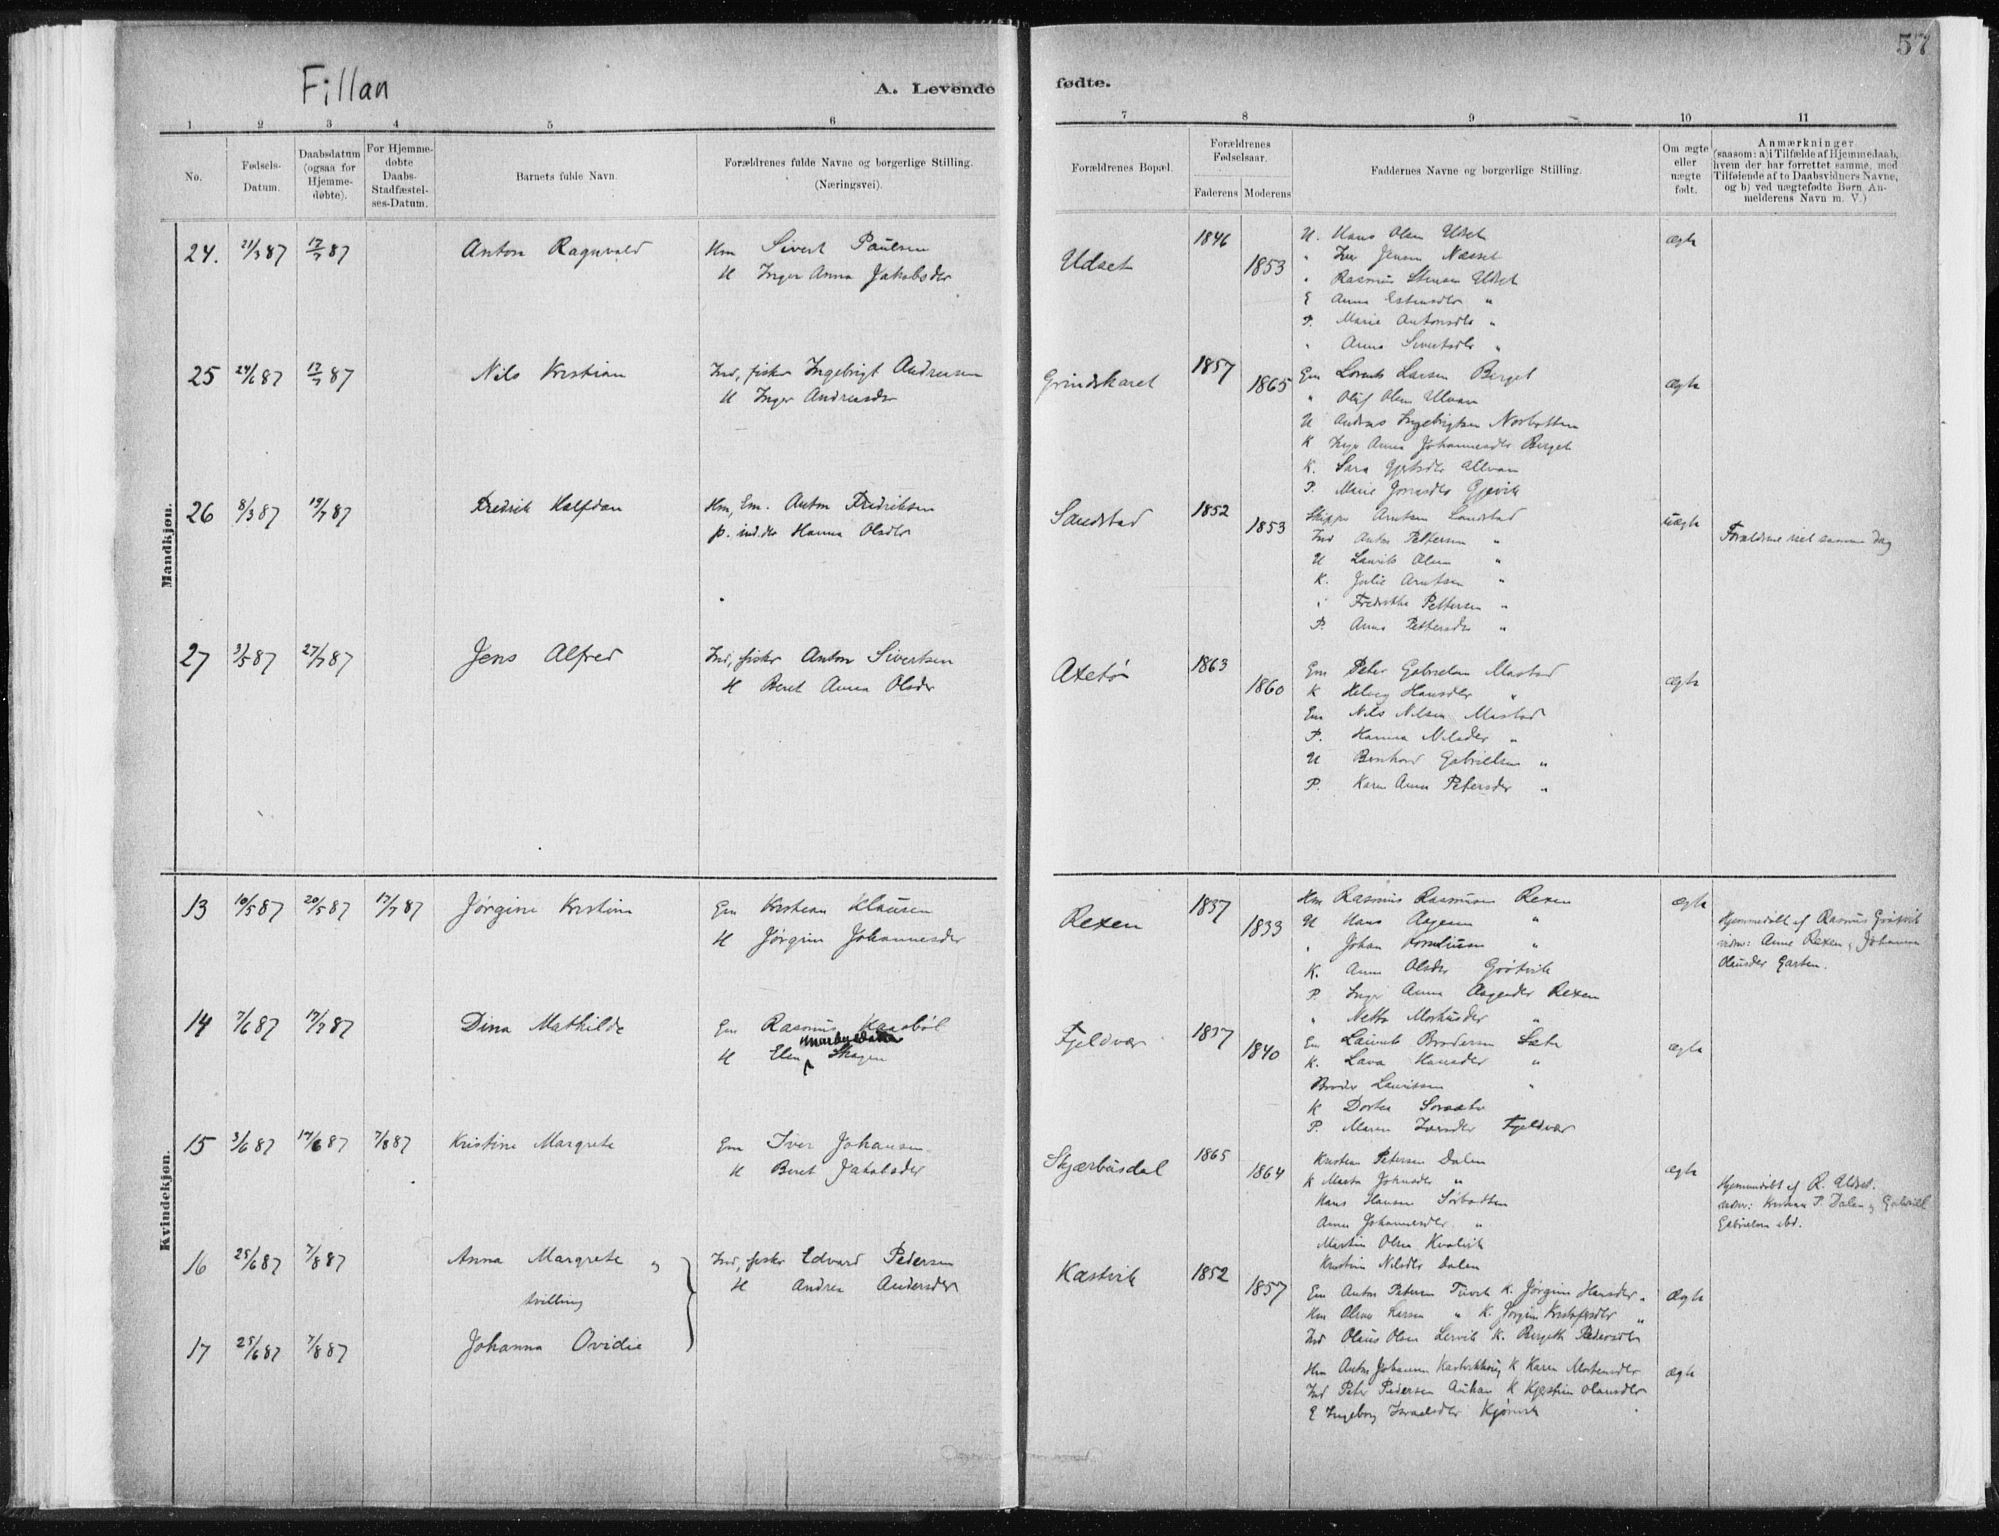 57
Fillan
A. Levende fødte.
1 2 3 4 5 6 7 8 9 10 11
No.
Fødsels-Datum.
Daabsdatum (ogsaa for Hjemme-døbte).
For Hjemme-døbte Daabs-Stadfæstel-ses-Datum.
Barnets fulde Navn.
Forældrenes fulde Navne og borgerlige Stilling. (Næringsvei).
Forældrenes Bopæl.
Forældrenes Fødselsaar.
Faderens Moderens
Faddernes Navne og borgerlige Stilling.
Om ægte eller uægte født.
Anmærkninger
(saasom: a) i Tilfælde af Hjemmedaab, hvem der har forrettet samme, med Tilføiende af to Daabsvidners Navne, og b) ved uægtefødte Børn Anmelderens Navn m. V.)
Mandkjøn.
24. 21/3 87 17/7 87 Anton Ragnvald Hm Sivert Paulsen Udset 1846 U. Hans Olsen Udset ægte
H Inger Anna Jakobsdr 1853 " Iver Jensen Næsset
" Rasmus Stensen Udset
E Anna Estensdtr "
P. Marie Antonsdtr "
" Anna Sivertsdtr "
25 24/6 87 17/7 87 Nils Kristian Ind, fisker Ingebrigt Andreesen Grindskaret 1857 Gm Lorents Larsen Berget ægte
H Inger Andreasdr 1865 " Oluf Olsen Ulvan
U Andreas Ingebrigtsen Norbotten
K Inger Anna Johannesdtr Berget
K. Sara Gjertsdtr Ulvan
P. Marie Jonasdtr Gjævik
26 8/3 87 19/7 87 Fredrik Halfdan Hm, Em. Anton Fredriksen Sandstad 1852 Skipper Arntsen Sandstad uægte
p. ind.dtr Hanna Olsdtr 1853 Ind Anton Pettersen " Forældrene viet samme Dag
U Laurits Olsen "
K. Julie Arntsen "
" Fredrikke Pettersen "
P. Anna Pettersdr "
27 3/5 87 27/7 87 Jens Alfred Ind, fisker Anton Sivertsen Axetø 1863 Gm Peter Gabrielsen Mastad ægte
H Beret Anna Olsdr 1860 K Helvig Hansdtr "
Gm Nils Nilsen Mastad
P. Hanna Nilsdr "
U Bernhard Gabrielsen "
P. Karen Anna Petersdr "
Kvindekjøn.
13 10/5 87 20/5 87 17/7 87 Jørgine Kristine Gm Kristian Klausen Rexen 1837 Hm Rasmus Rasmusen Rexen ægte
H Jørgine Johannesdr 1833 U Hans Aagesen " Hjemmedøbt af Rasmus Grøtvik
" Johan Kornliusen " vidne: Anne Rexen, Johanna
K. Anne Olsdr Grøtvik Olausdr Garten.
P Inger Anna Aagesdtr Rexen
" Netta Morkusdr "
14 7/6 87 17/7 87 Dina Mathilde Gm Rasmus Kaasbøl Fjeldvær 1837 Gm Laurits Brodersen Sæte ægte
H Elen Skagen 1840 K. Lava Hansdtr "
Broder Lauritsen "
K Dortea Sorsæte
P. Maren Iversdtr Fjeldvær
15 3/6 87 17/6 87 7/8 87 Kristine Margrete Gm Iver Johansen Skjærbusdal 1865 Kristian Petersen Dalen ægte
H Beret Jakobsdr 1864 K Marta Johnsdtr " Hjemmedøbt af R. Uldset.
Hans Hansen Sørbotten vidner: Kristian P. Dalen og Gabriel
Anne Johannesdtr " Gabrielsen ibd.
Martin Olsen Kvalvik
Kristine Nilsdtr Dalen
16 25/6 87 7/8 87 Anna Margrete og Ind, fisker Edvard Pedersen Kastvik 1852 Em Anton Petersen Tuvik K. Jørgine Hansdtr " ægte
tvilling H Andrea Andersdtr 1857 Hm Larsen " K. Jørgine Kristofersdtr "
17 25/6 87 7/8 87 Johanna Ovidie Ind Olaus Olsen Lervik K. Bergette Pedersdtr
Hm Anton Johansen Kastvikhaug K Karen Mortensdtr ægte
Ind Peter Pedersen Aunan K Kjerstine Olausdtr
E Ingeborg Israelsdtr Kjørvik